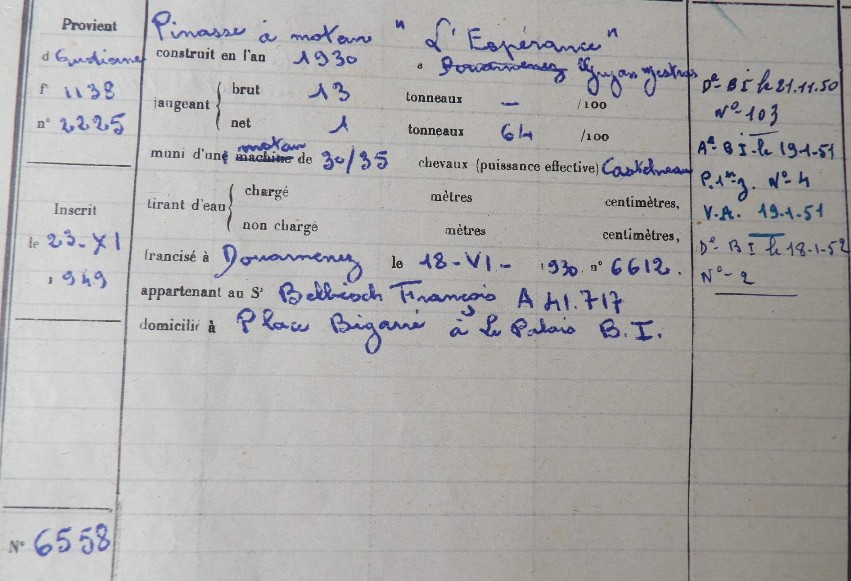 Provient
d Audierne
f° 1138
n° 2225
Inscrit
le 23-XI
1949
N° 6558
Pinasse à moteur "L'Espérance"
construit en l'an 1930 a Douarnenez Gujan Mestras
jaugeant brut 13 tonneaux — /100
net 1 tonneaux 64 /100
muni d'une machine moteur de 30/35 chevaux (puissance effective) Castelneau
tirant d'eau chargé mètres centimètres,
non chargé mètres centimètres,
francisé à Douarnenez le 18-VI- 1930 n° 6612.
appartenant au Sr François A 41.717
domicilié à Place Bigarré à Le Palais B.I.
Dt- B I le 21.11.50
N°- 103
At B I- le 19-1-51
N°- 4
V.A. 19-1-51
Dt- B I le 18-1-52
N°- 2